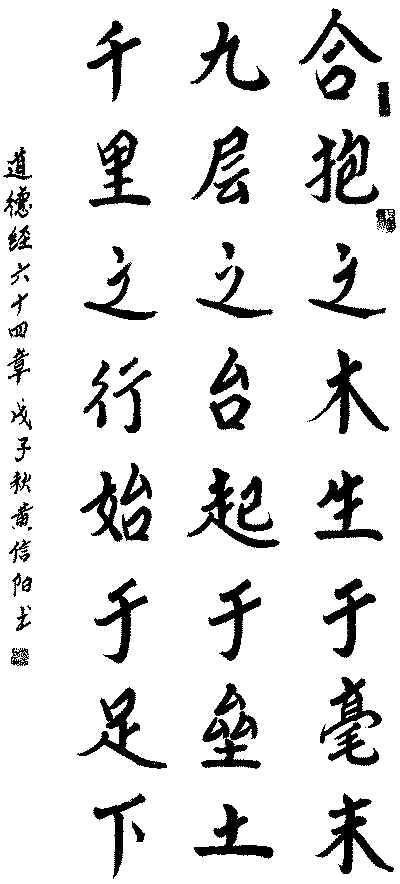 合抱之木生于毫末
九层之台起于垒土
千里之行始于足下
道德经六十四章 戊子秋黄信阳书